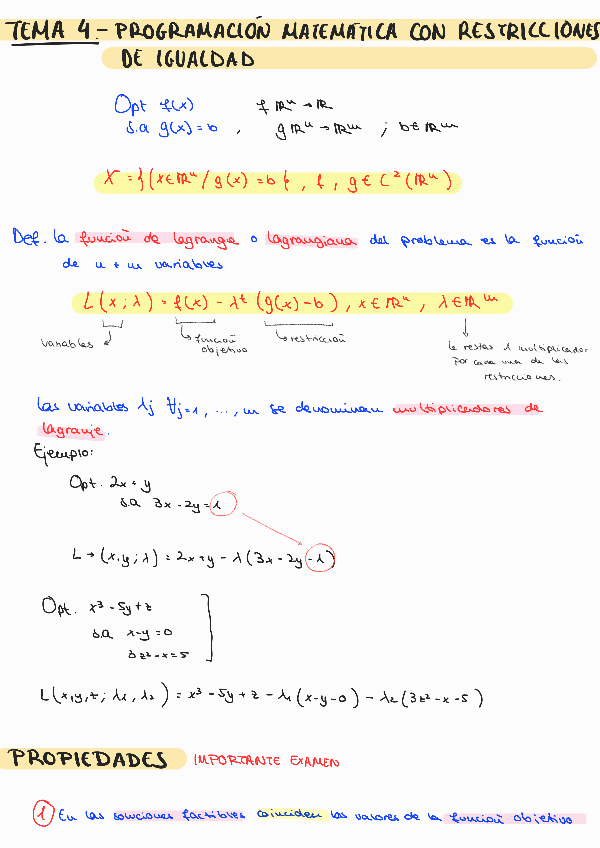 TEMA 4.- PROGRAMACIÓN MATEMÁTICA CON RESTRICCIONES
DE IGUALDAD
Opt f(x) f ℝⁿ → ℝ
s.a g(x) = b , g ℝⁿ → ℝᵐ ; b ∈ ℝᵐ
X = {(x ∈ ℝⁿ / g(x) = b} , f, g ∈ C²(ℝⁿ)
Def. La función de lagrange o lagrangiana del problema es la función
de n + m variables
L(x; λ) = f(x) - λᵗ (g(x) - b), x ∈ ℝⁿ, λ ∈ ℝᵐ
variables función objetivo restricción
le restas 1 multiplicador
por cada una de las
restricciones.
Las variables λj ∀j=1, ..., m se denominan multiplicadores de
lagranje.
Ejemplo:
Opt. 2x + y
s.a 3x - 2y = 1
L → (x, y; λ) = 2x + y - λ (3x - 2y - 1)
Opt. x³ - 5y + z
s.a x - y = 0
3z² - x = 5
L(x, y, z; λ1, λ2) = x³ - 5y + z - λ1 (x - y - 0) - λ2 (3z² - x - 5)
PROPIEDADES IMPORTANTE EXAMEN
1 En las soluciones factibles coinciden los valores de la función objetivo